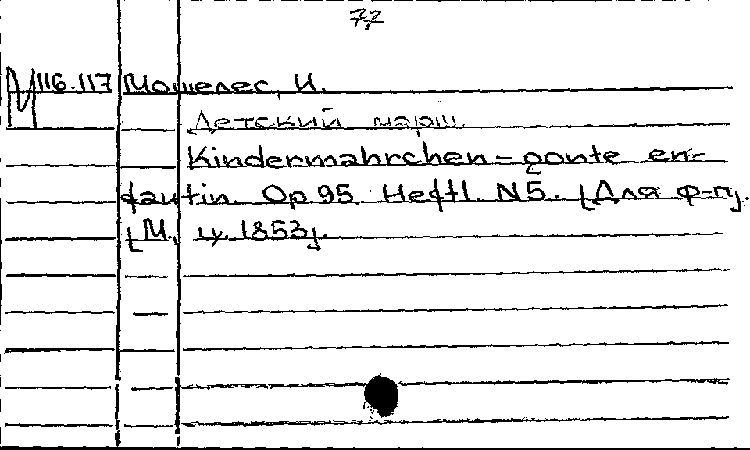 7,2
М 116.117 Мошелес, И.
Детский марш.
Kindermahrchen = conte en-
fantin. Op 95. Heft 1. N5. [Для ф-п].
[М., ц. 1853].